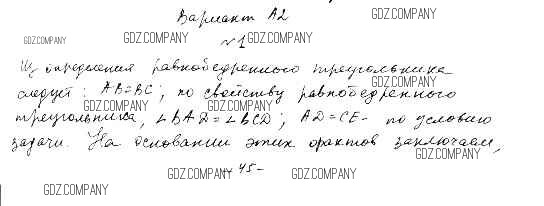 Вариант А2
GDZ.COMPANY
GDZ.COMPANY
GDZ.COMPANY
№1
GDZ.COMPANY
Из определения равнобедренного треугольника
GDZ.COMPANY
следует: AB=BC; по свойству равнобедренного
GDZ.COMPANY
GDZ.COMPANY
треугольника, ∠BAD=∠BCD; AD=CE - по условию
задачи. На основании этих фактов заключаем,
GDZ.COMPANY
GDZ.COMPANY
- 45 -
GDZ.COMPANY
GDZ.COMPANY